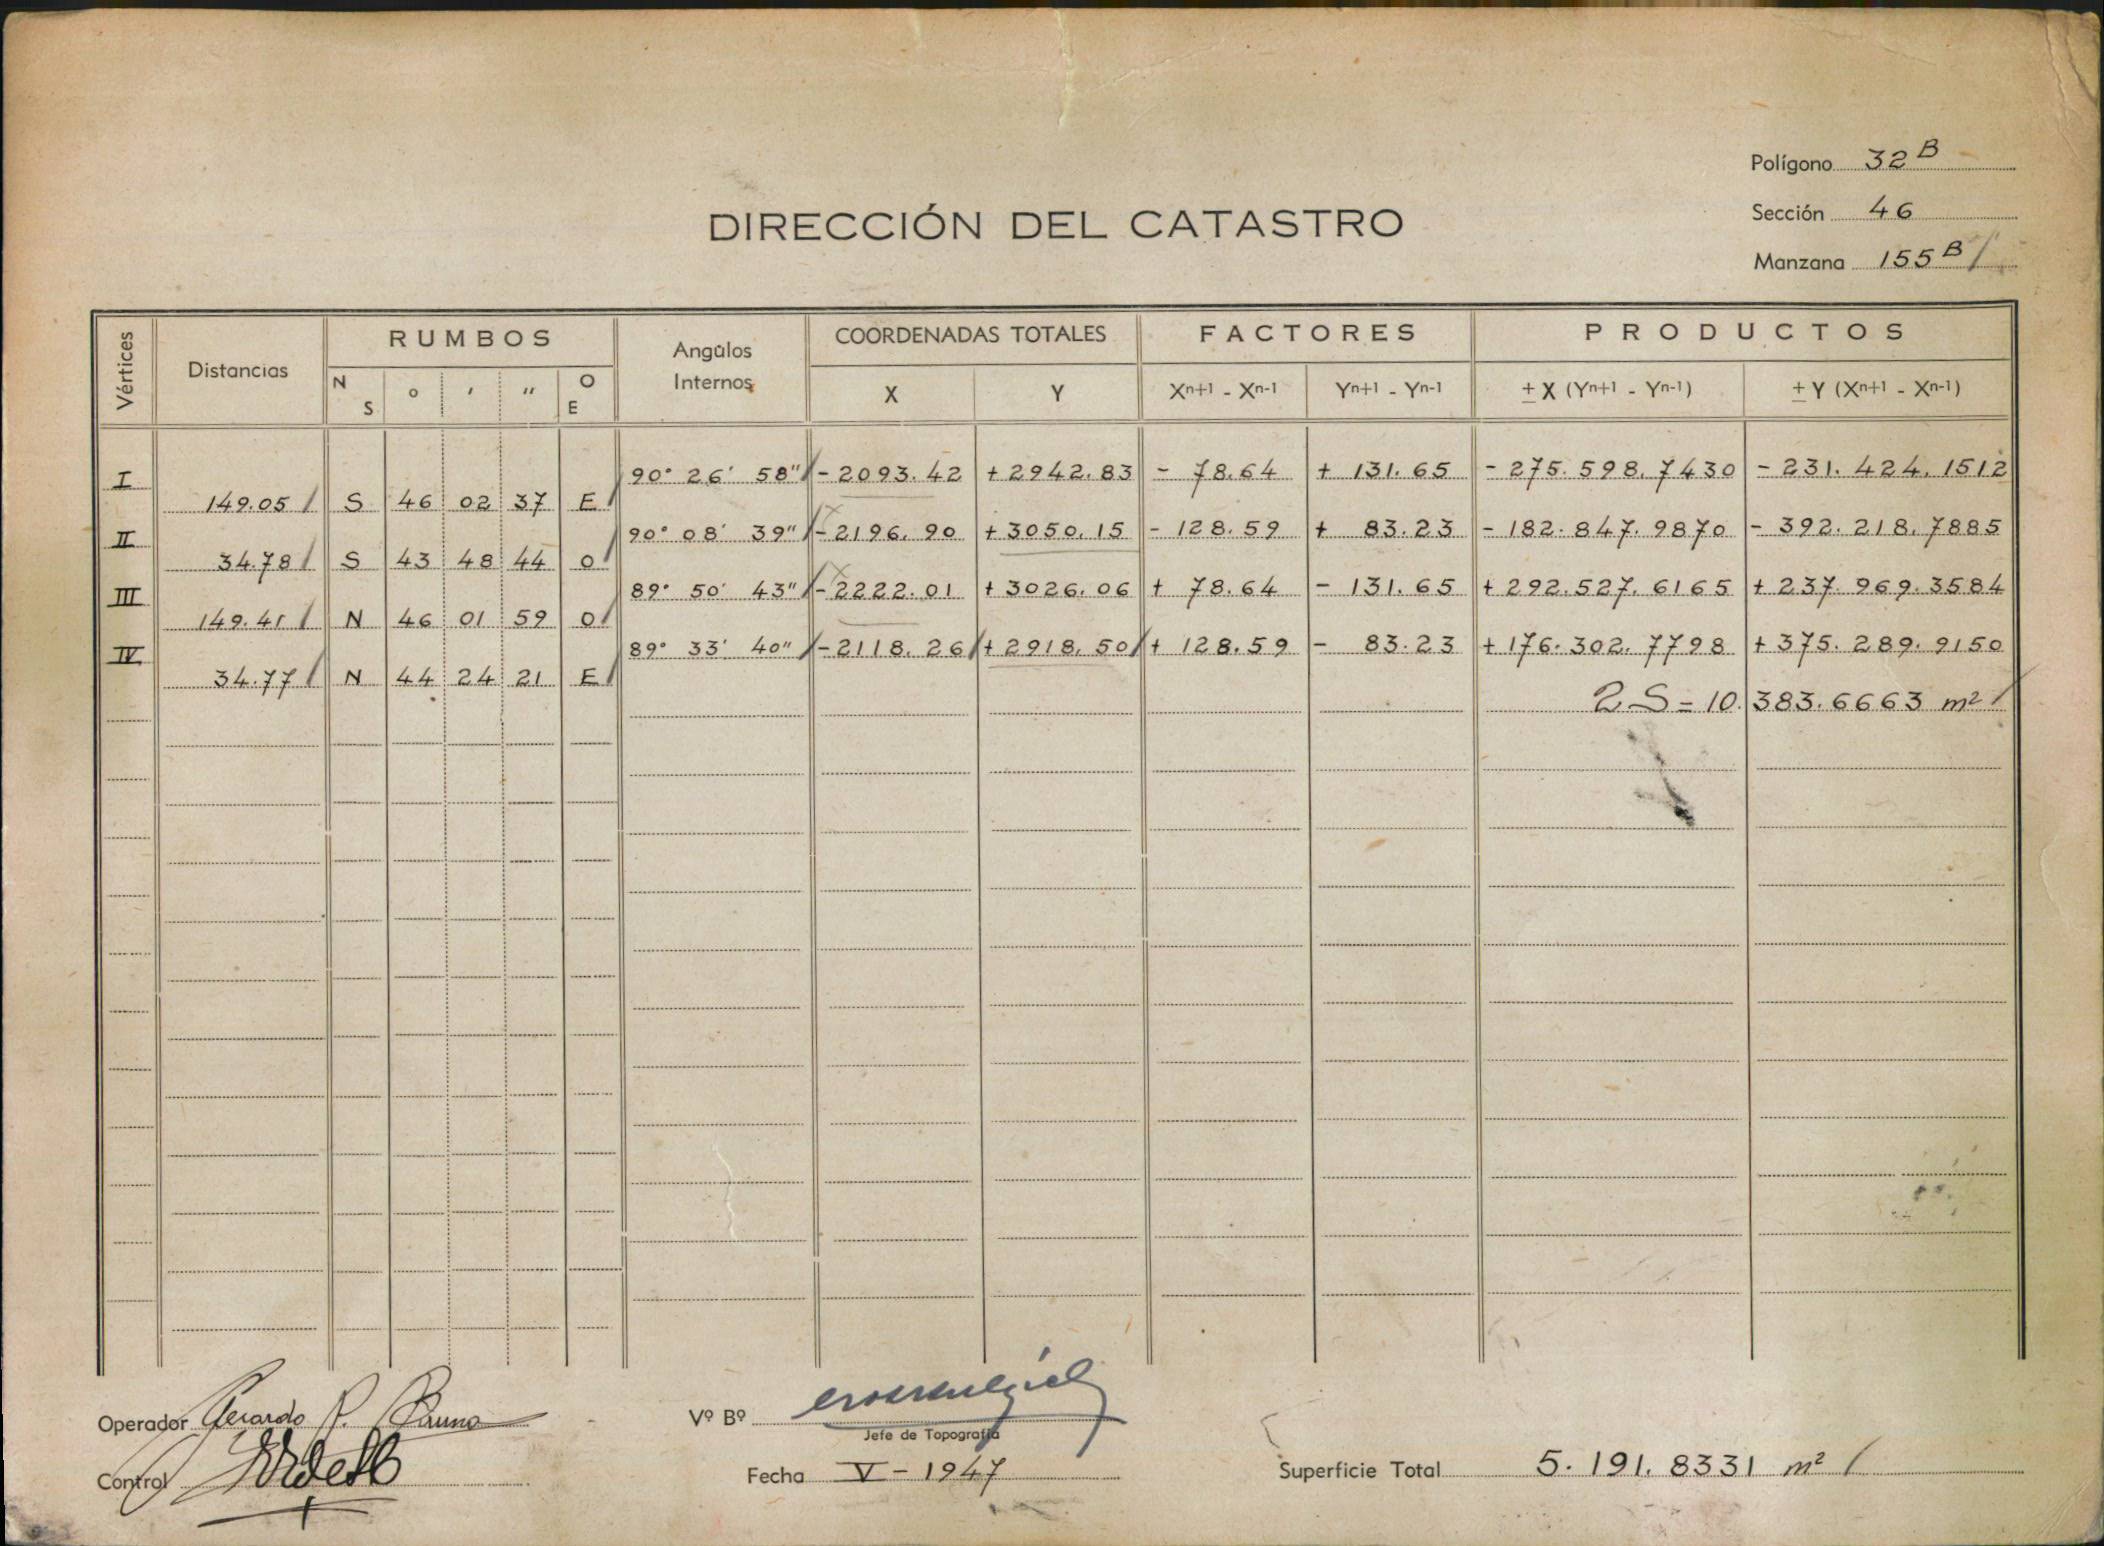 Polígono 32 B
Sección 46
Manzana 155 B /
DIRECCIÓN DEL CATASTRO
Vértices Distancias RUMBOS Angulos Internos COORDENADAS TOTALES FACTORES PRODUCTOS
N S ° ' " O E X Y Xn+1 - Xn-1 Yn+1 - Yn-1 ± X (Yn+1 - Yn-1) ± Y (Xn+1 - Xn-1)
I 90° 26' 58" - 2093.42 + 2942.83 - 78.64 + 131.65 - 275.598.7430 - 231.424.1512
149.05 S 46 02 37 E
II 90° 08' 39" - 2196.90 + 3050.15 - 128.59 + 83.23 - 182.847.9870 - 392.218.7885
34.78 S 43 48 44 O
III 89° 50' 43" - 2222.01 + 3026.06 + 78.64 - 131.65 + 292.527.6165 + 237.969.3584
149.41 N 46 01 59 O
IV 89° 33' 40" - 2118.26 + 2918.50 + 128.59 - 83.23 + 176.302.7798 + 375.289.9150
34.77 N 44 24 21 E
2S = 10.383.6663 m²
Operador Gerardo P. Bruno
Vº Bº
Jefe de Topografía
Control
Fecha V - 1947
Superficie Total 5.191.8331 m²